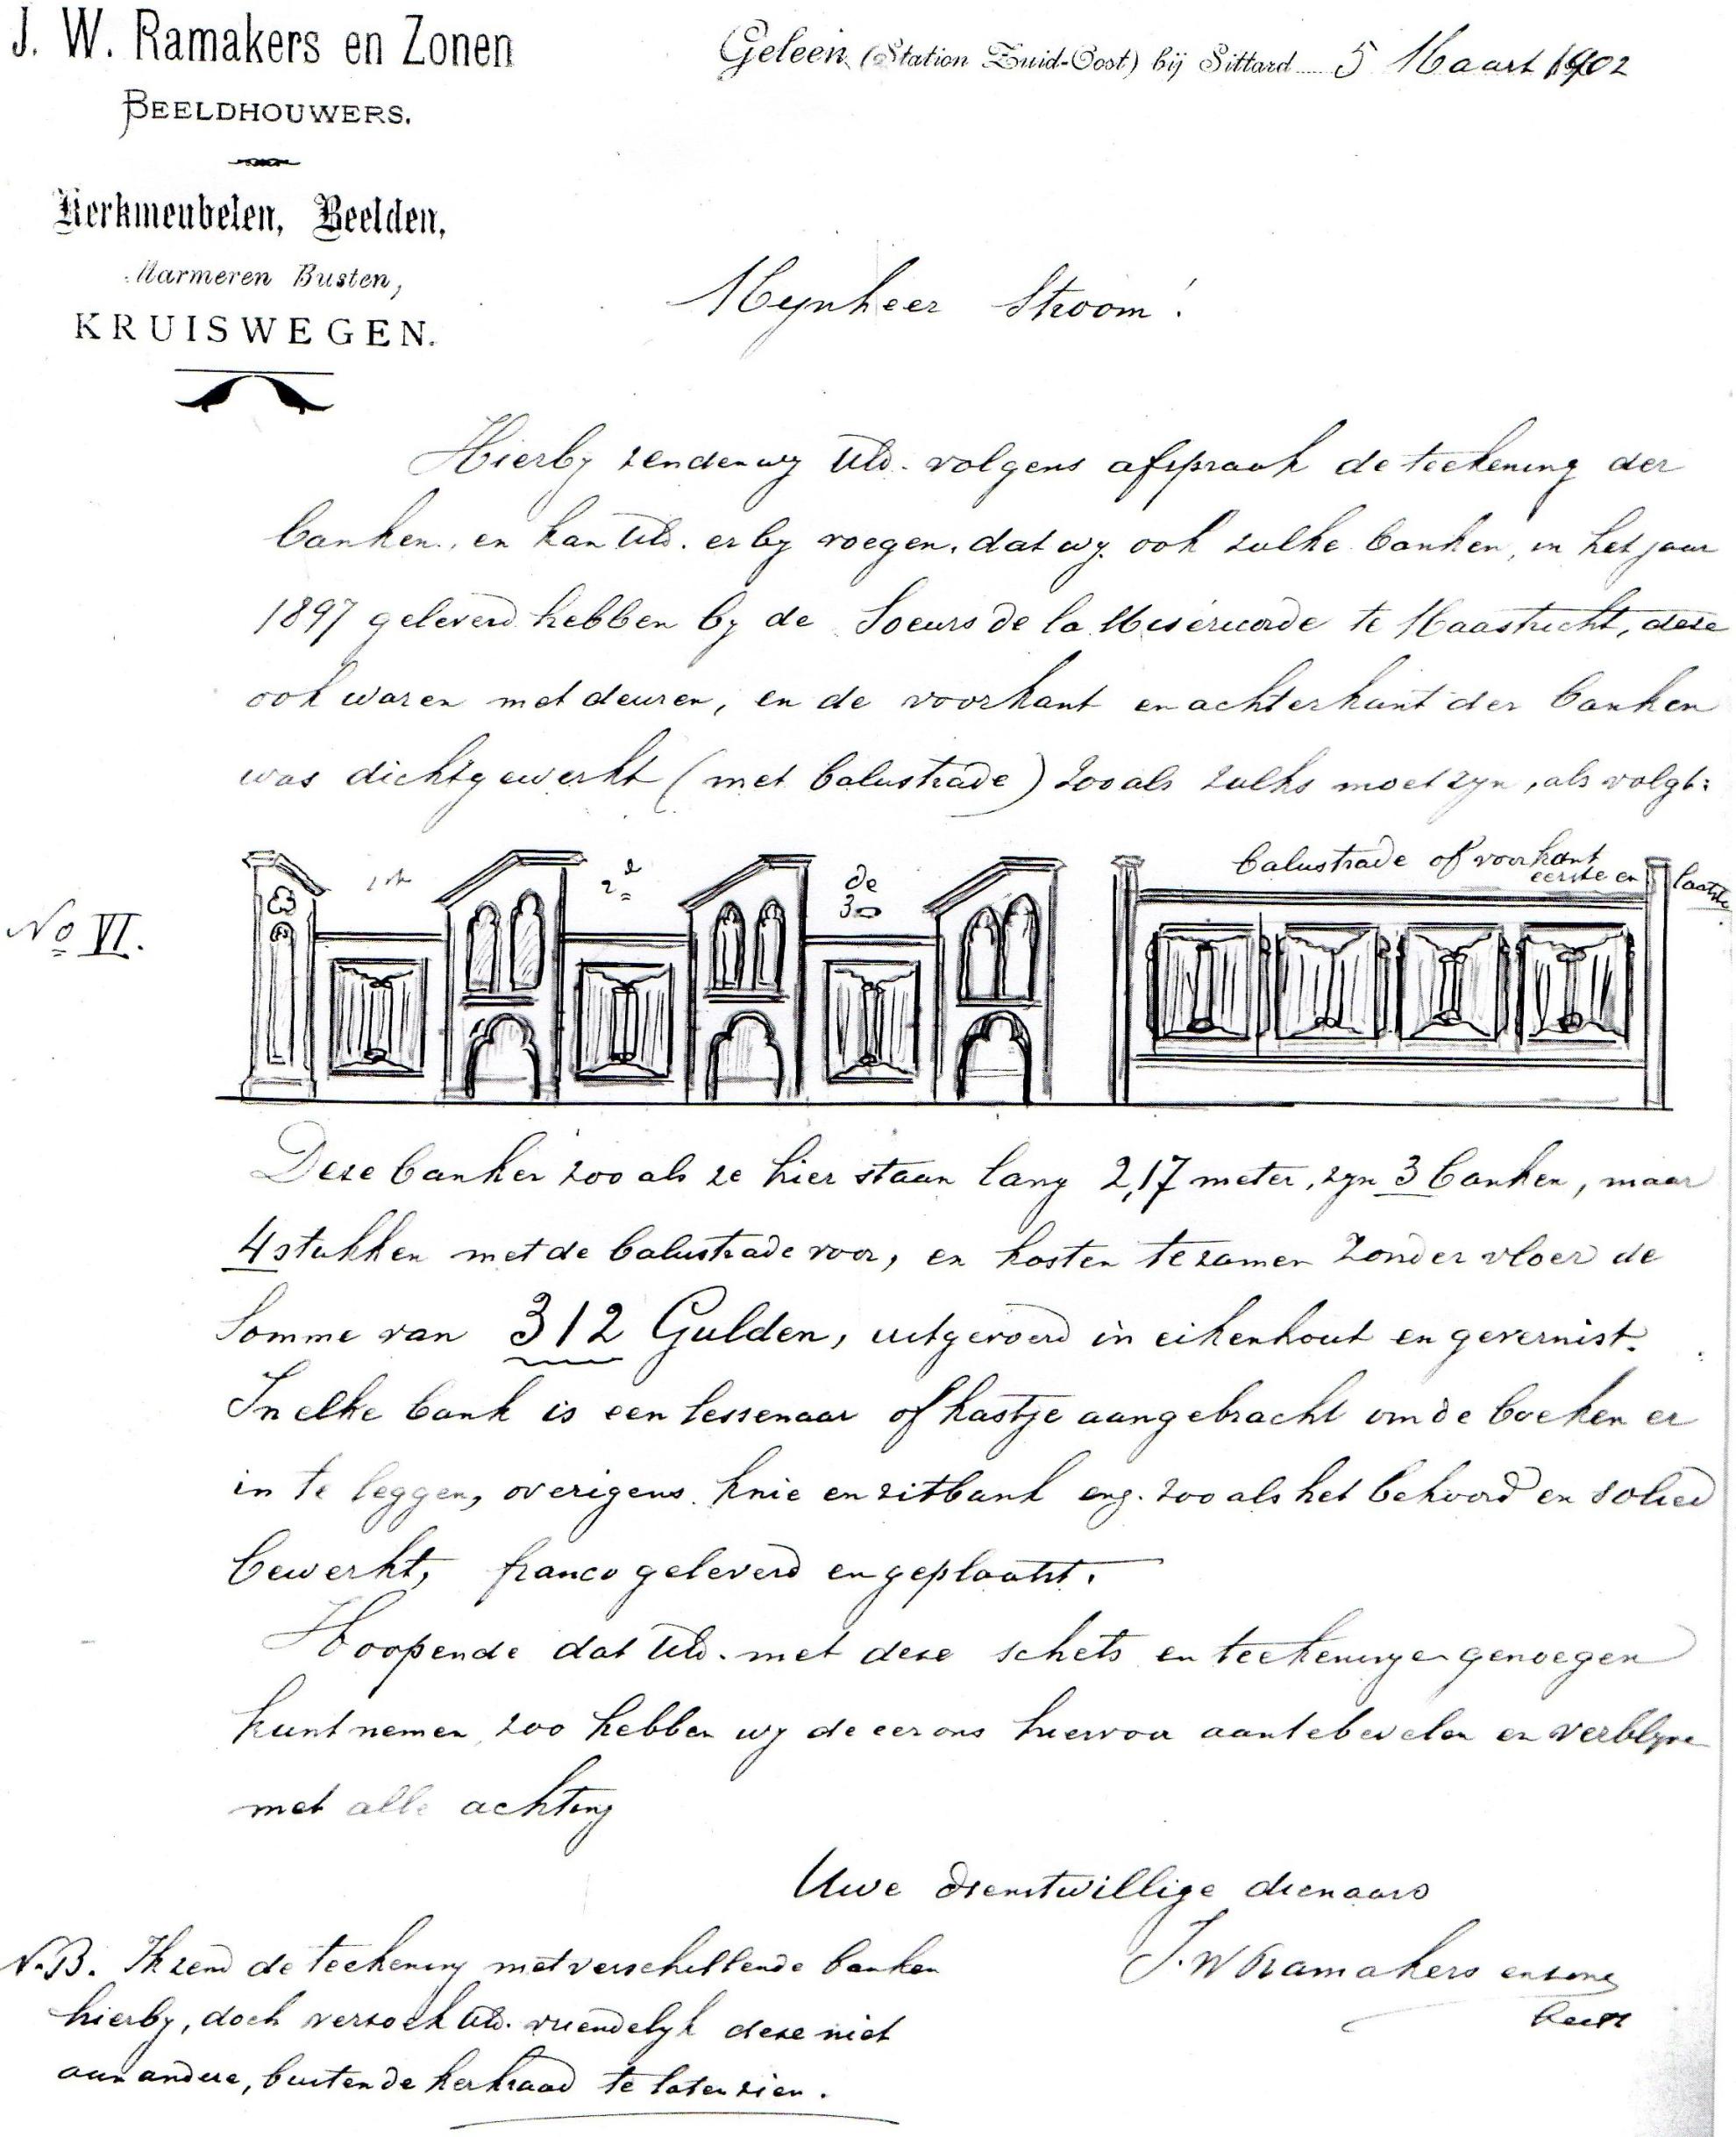 J. W. Ramakers en Zonen
BEELDHOUWERS.
Kerkmeubelen, Beelden,
Marmeren Busten,
KRUISWEGEN.
Geleen (Station Zuid-Oost) bij Sittard 5 Maart 1902
Mynheer Stroom!
Hierby zenden wy UEd. volgens afspraak de teekening der
banken, en kan UEd. er by voegen, dat wy ook zulke banken, in het jaar
1897 geleverd hebben by de Soeurs de la Miséricorde te Maastricht, deze
ook waren met deuren, en de voorkant en achterkant der banken
was dichtgewerkt (met balustrade) zooals zulks moet zyn, als volgt:
No VI.
1ste
2de
de
3
balustrade of voorkant
eerste en laatste
Deze banken zooals ze hier staan lang 2,17 meter, zyn 3 banken, maar
4 stukken met de balustrade voor, en kosten te zamen zonder vloer de
Somme van 312 Gulden, uitgevoerd in eikenhout en gevernist.
In elke bank is een lessenaar of kastje aangebracht om de boeken er
in te leggen, overigens knie en zitbank enz. zooals het behoord en solied
bewerkt, franco geleverd en geplaatst.
Hoopende dat UEd. met deze schets en teekeninge genoegen
kunt nemen, zoo hebben wy de eer ons hiervoor aantebevelen en verblyve
met alle achting
Uwe dienstwillige dienaars
J. W Ramakers en zone
N.B. Ik zend de teekening met verschillende banken
hierby, doch verzoek UEd. vriendelyk deze niet
aan andere, buiten de kerkraad te laten zien.